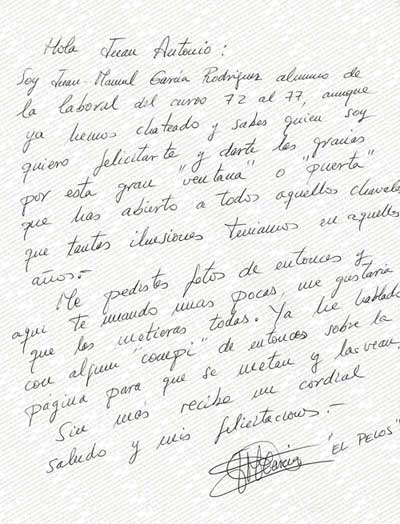 Hola Juan Antonio:
Soy Juan-Manuel García Rodríguez alumno de
la laboral del curso 72 al 77, aunque
ya hemos chateado y sabes quien soy
quiero felicitarte y darte las gracias
por esta gran "ventana" o "puerta"
que has abierto a todos aquellos chavales
que tantas ilusiones teniamos en aquellos
años.-
Me pedistes fotos de entonces y
aqui te mando unas pocas, me gustaria
que las metieras todas. Ya he hablado
con algun "compi" de entonces sobre la
pagina para que se metan y las vean.
Sin más recibe un cordial
saludo y mis felicitaciones.-
"EL PELOS"